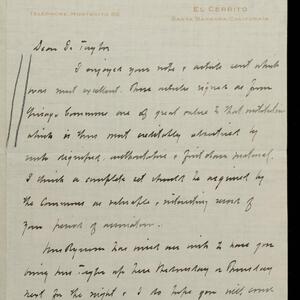 TELEPHONE, MONTECITO 88
EL CERRITO
SANTA BARBARA, CALIFORNIA
Dear Dr. Taylor
I enjoyed your note & article sent which
was most excellent. These articles signed as from
Chicago Commons are of great value to that institution
which is thus most creditably advertised by
such dignified, authoritative & first class material.
I think a complete set should be acquired by
the Commons as valuable & interesting record of
your period of association.
Mrs has with me wish to have you
bring Mrs Taylor up here Wednesday or Thursday
next for the night & I do hope you will come